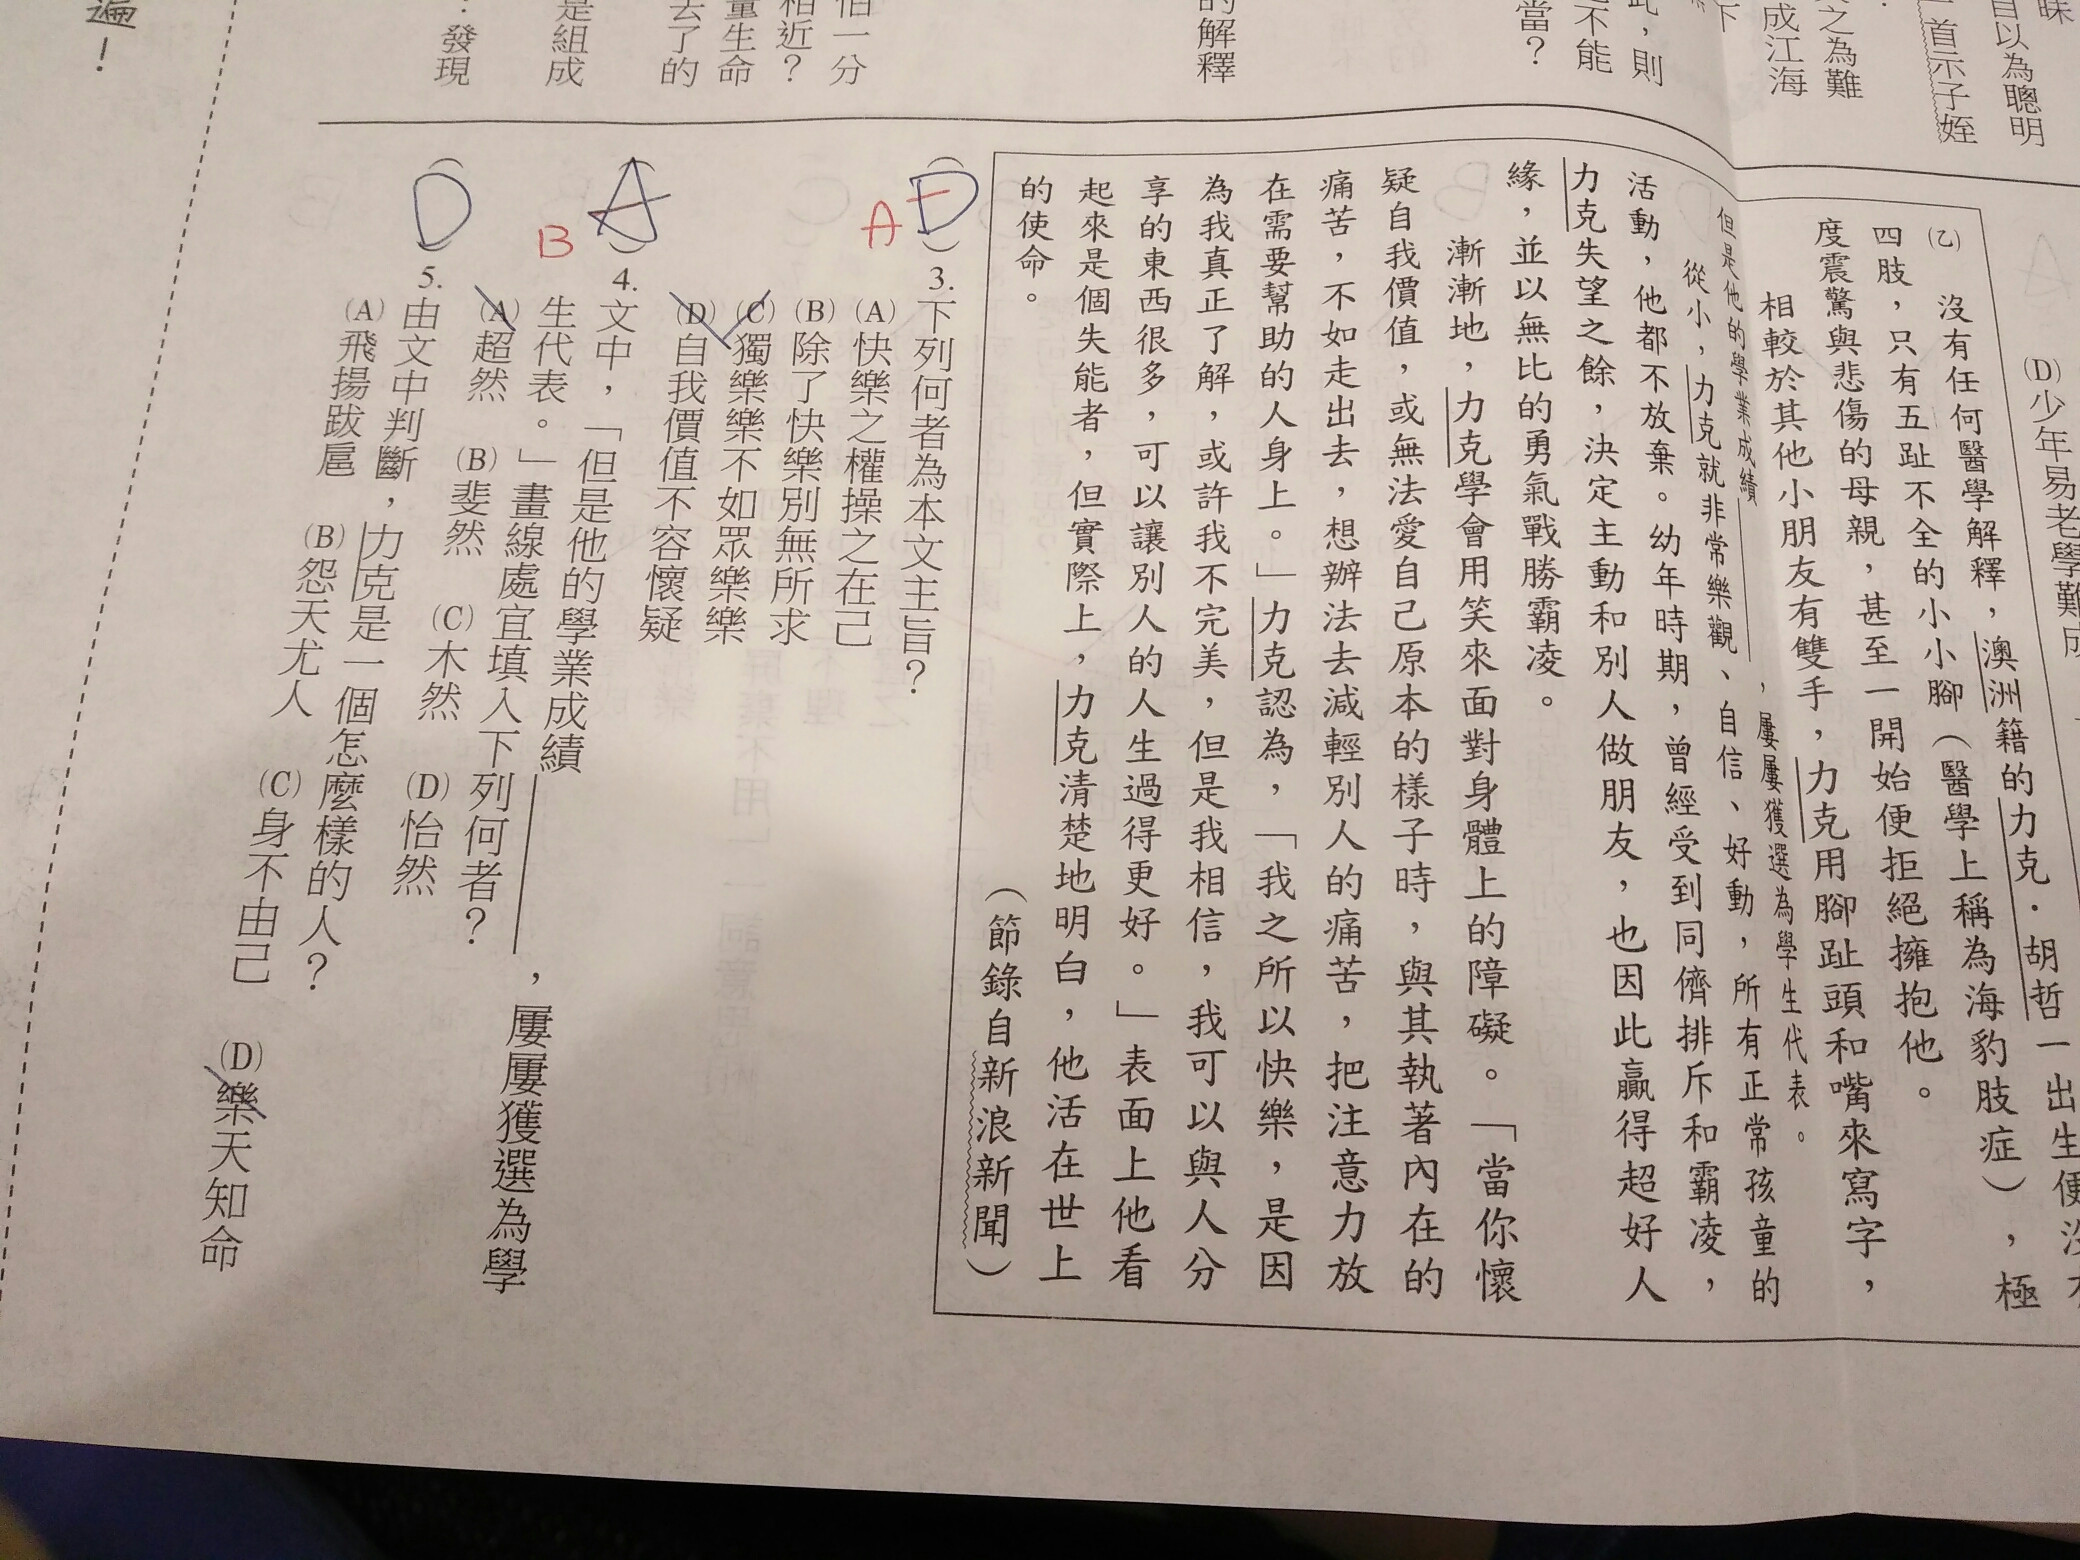 昧
自以為聰明
一首示子姪
之為難
成江海
下
此，則
不能
當？
的解釋
伯一分
相近？
量生命
去了的
是組成
：發現
遍！
(D)少年易老學難成
(乙)　沒有任何醫學解釋，澳洲籍的力克．胡哲一出生便沒有
四肢，只有五趾不全的小小腳（醫學上稱為海豹肢症），極
度震驚與悲傷的母親，甚至一開始便拒絕擁抱他。
相較於其他小朋友有雙手，力克用腳趾頭和嘴來寫字，
但是他的學業成績　　　，屢屢獲選為學生代表。
從小，力克就非常樂觀、自信、好動，所有正常孩童的
活動，他都不放棄。幼年時期，曾經受到同儕排斥和霸凌，
力克失望之餘，決定主動和別人做朋友，也因此贏得超好人
緣，並以無比的勇氣戰勝霸凌。
漸漸地，力克學會用笑來面對身體上的障礙。「當你懷
疑自我價值，或無法愛自己原本的樣子時，與其執著內在的
痛苦，不如走出去，想辦法去減輕別人的痛苦，把注意力放
在需要幫助的人身上。」力克認為，「我之所以快樂，是因
為我真正了解，或許我不完美，但是我相信，我可以與人分
享的東西很多，可以讓別人的人生過得更好。」表面上他看
起來是個失能者，但實際上，力克清楚地明白，他活在世上
的使命。
（節錄自新浪新聞）
(D) A 3.下列何者為本文主旨？
(A)快樂之權操之在己
(B)除了快樂別無所求
(C)獨樂樂不如眾樂樂
(D)自我價值不容懷疑
(A) B 4.文中，「但是他的學業成績　　　，屢屢獲選為學
生代表。」畫線處宜填入下列何者？
(A)超然　(B)斐然　(C)木然　(D)怡然
(D) 5.由文中判斷，力克是一個怎麼樣的人？
(A)飛揚跋扈　(B)怨天尤人　(C)身不由己　(D)樂天知命